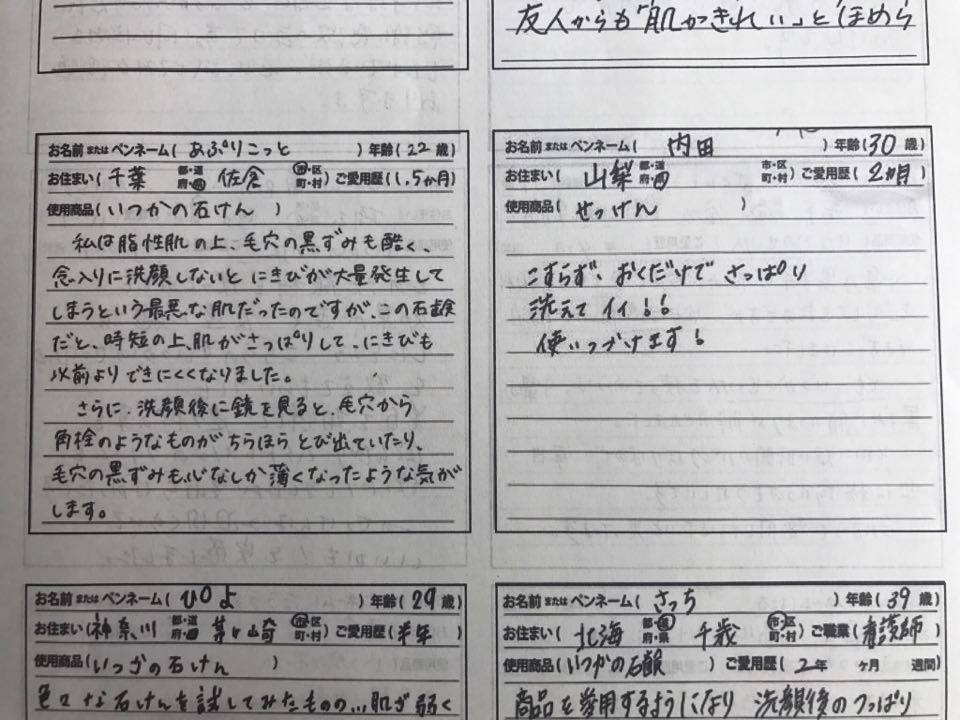 友人からも「肌がきれい」とほめら
お名前またはペンネーム( あぷりこっと )年齢(22歳)
お住まい(千葉 都・道府・県 佐倉 市・区町・村)ご愛用歴(1.5か月)
使用商品(いつかの石けん )
私は脂性肌の上、毛穴の黒ずみも酷く、
念入りに洗顔しないと にきびが大量発生して
しまうという最悪な肌だったのですが、この石鹸
だと、時短の上、肌がさっぱりして、にきびも
以前よりできにくくなりました。
さらに、洗顔後に鏡を見ると、毛穴から
角栓のようなものがちらほら とび出ていたり、
毛穴の黒ずみも心なしか薄くなったような気が
します。
お名前またはペンネーム( 内田 )年齢(30歳)
お住まい(山梨 都・道府・県 市・区町・村)ご愛用歴(2ヵ月)
使用商品(せっけん )
こすらず、おくだけで さっぱり
洗えて イイ!!
使いつづけます!
お名前またはペンネーム( ぴよ )年齢(29歳)
お住まい(神奈川 都・道府・県 茅ヶ崎 市・区町・村)ご愛用歴(半年)
使用商品(いつかの石けん )
色々な石けんを試してみたものの…肌が弱く
お名前またはペンネーム( さっち )年齢(39歳)
お住まい(北海 都・道府・県 千歳 市・区町・村)ご職業(看護師)
使用商品(いつかの石鹸 )ご愛用歴(2年 ヶ月 週間)
商品を愛用するようになり 洗顔後のつっぱり